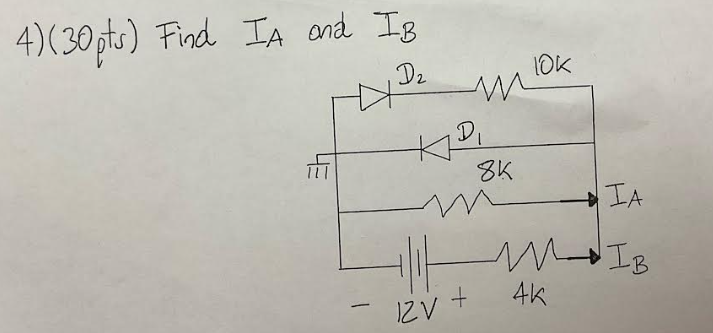 4) (30pts) Find IA and IB
D2
10K
D1
8K
IA
IB
- 12V +
4K